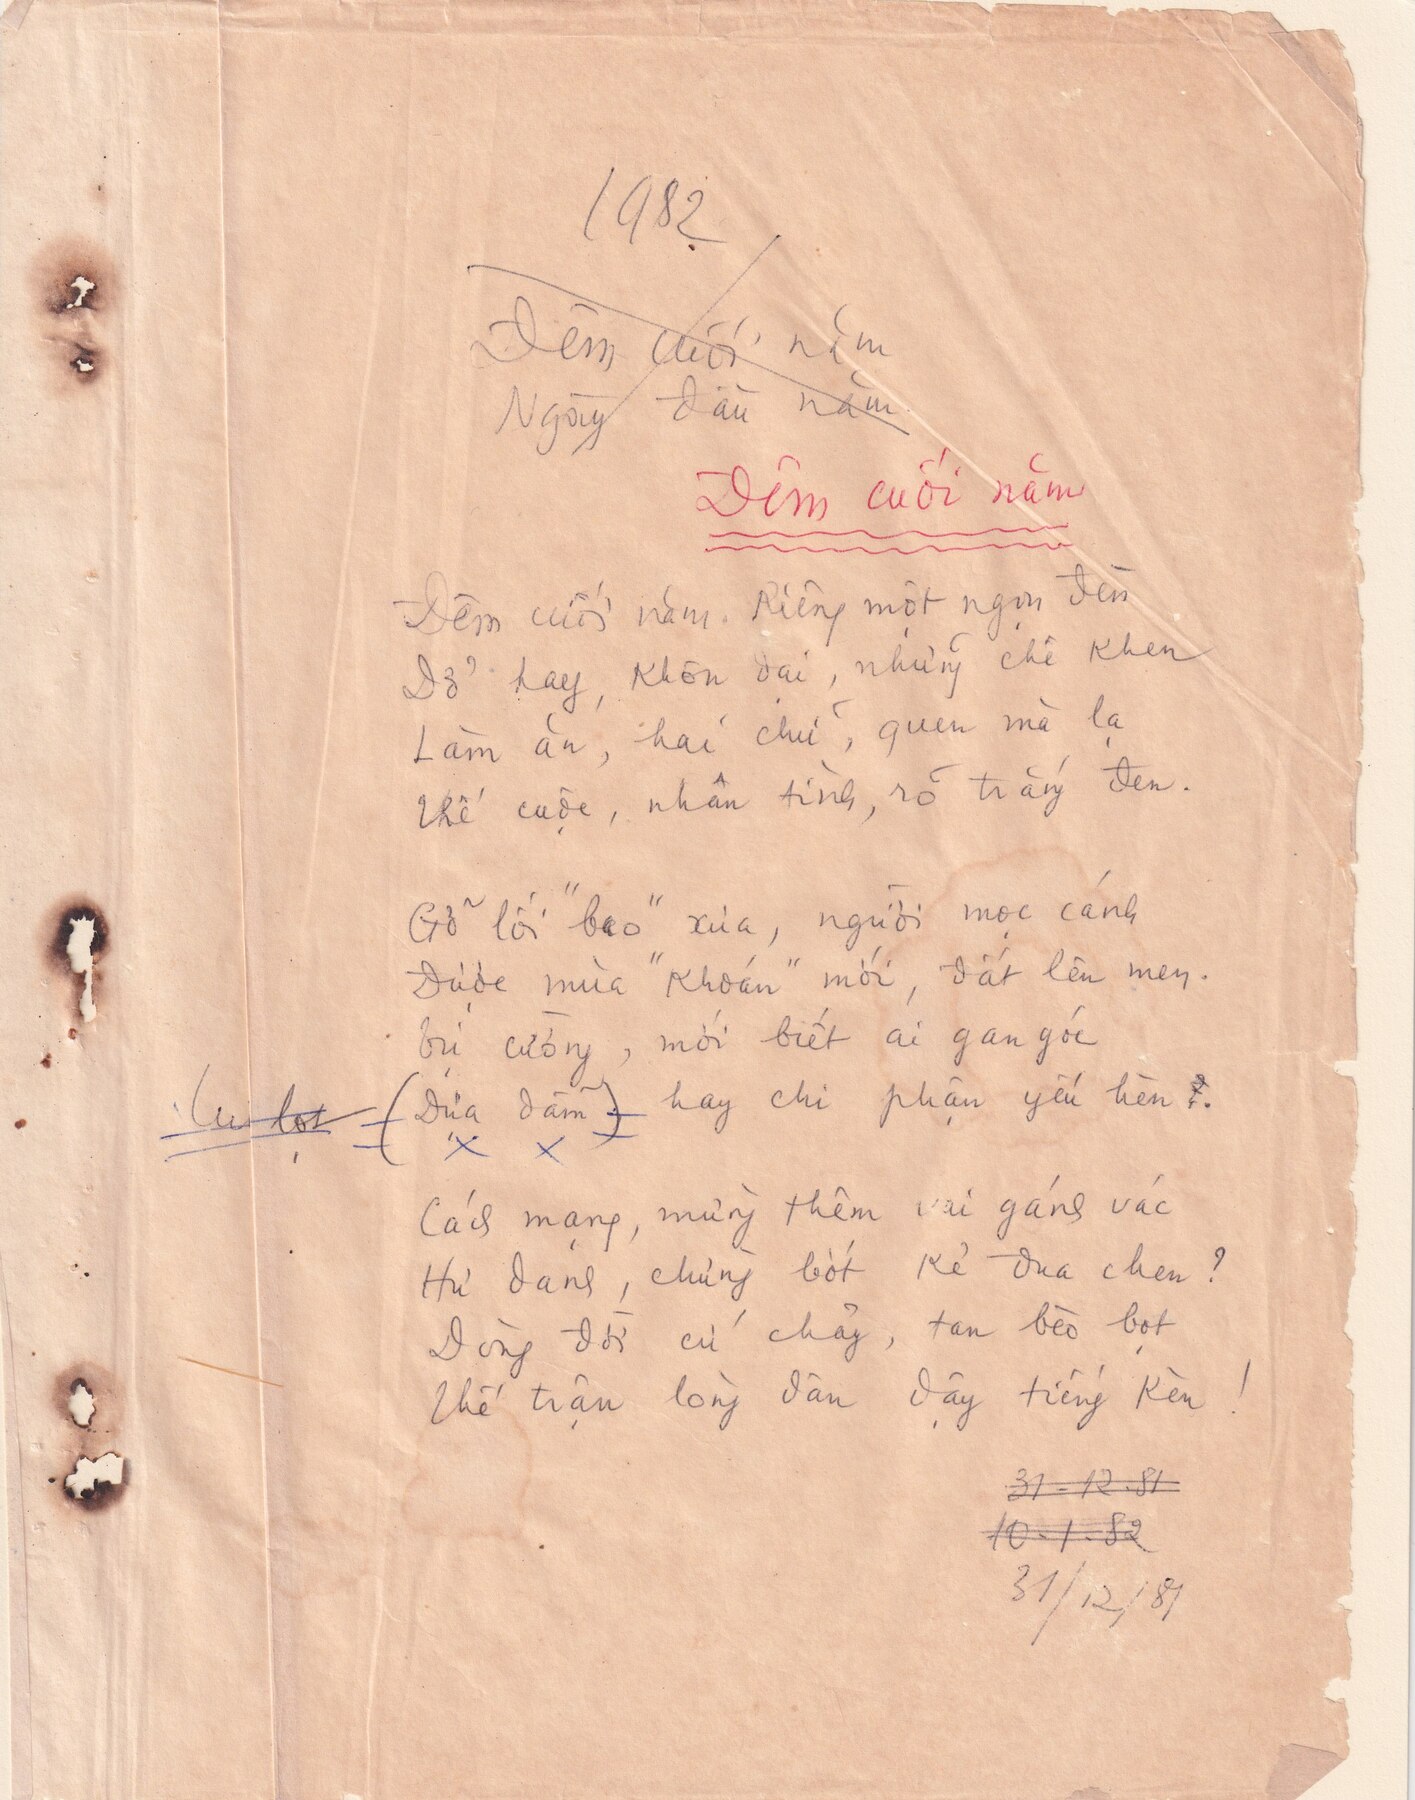 1982
Đêm cuối năm
Ngày đầu năm
Đêm cuối năm
Đêm cuối năm. Riêng một ngọn đèn
Dở hay, khôn dại, những chê khen
Làm ăn, hai chữ, quen mà lạ
Thế cuộc, nhân tình, rõ trắng đen.
Gỡ lối "bao" xưa, người mọc cánh
Được mùa "khoán" mới, đất lên men.
bụi cuồng, mới biết ai gan góc
lọt (Dựa dẫm) hay chi phận yếu hèn?.
Cách mạng, mừng thêm vai gánh vác
Hư danh, chừng bớt kẻ đua chen?
Dòng đời cứ chảy, tan bèo bọt
Thế trận lòng dân dậy tiếng kèn!
31-12-81
10-1-82
31/12/81